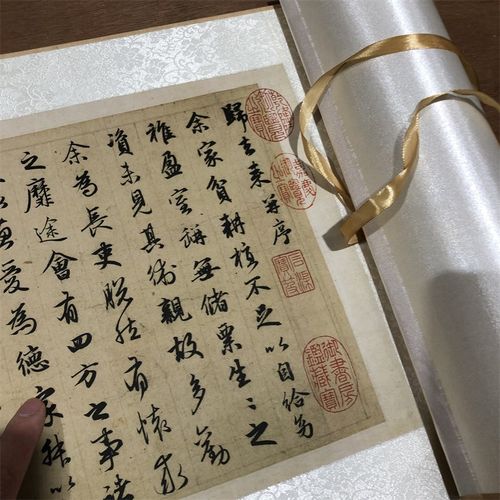 歸去来并序
余家貧耕植不足以自給幼
稚盈室缾無儲粟生〻之
資未見其術親故多勸
余為長吏脫然有懷求
之靡途會有四方之事諸
惠愛為德家叔以
石渠寶笈
御書房鑑藏寶